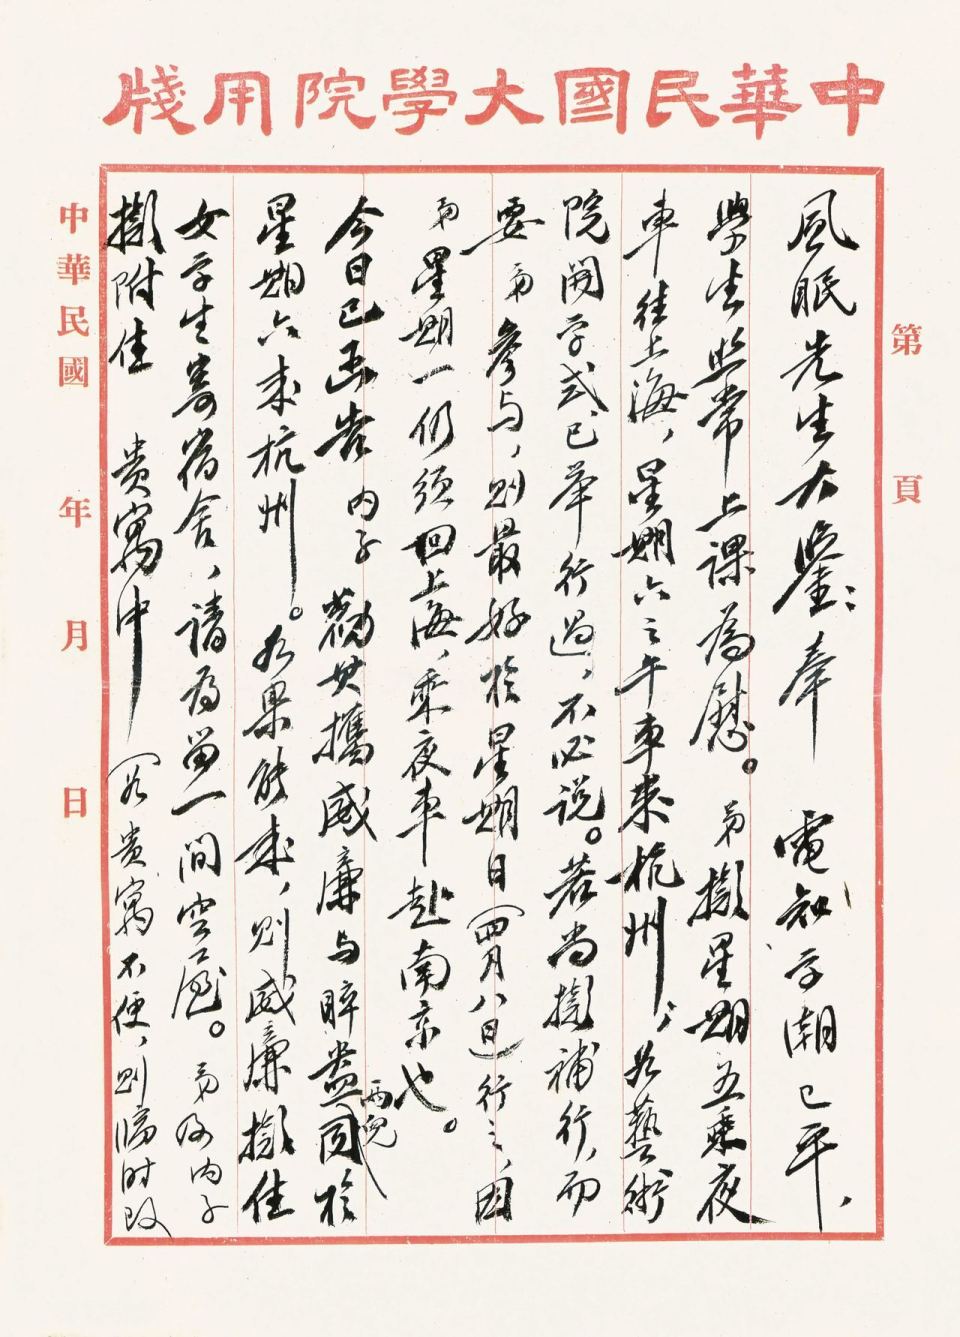 中華民國大學院用牋
第 頁
風眠先生大鑒：奉 電知学潮已平，
學生照常上課為慰。弟擬星期五乘夜
車往上海，星期六之午車來杭州，如藝術
院開学式已舉行過，不必說。若尚擬補行，而
要弟參与，則最好於星期日（四月八日）行之，因
弟星期一仍須回上海，乘夜車赴南京也。
今日已函告内子 勸其攜威廉与睟盎兩兒同於
星期六來杭州。如果能來，則威廉擬住
女学生寄宿舍，請為留一間空屋。弟及内子
擬附住 貴寓中（若貴寓不便，則臨时改
中華民國 年 月 日